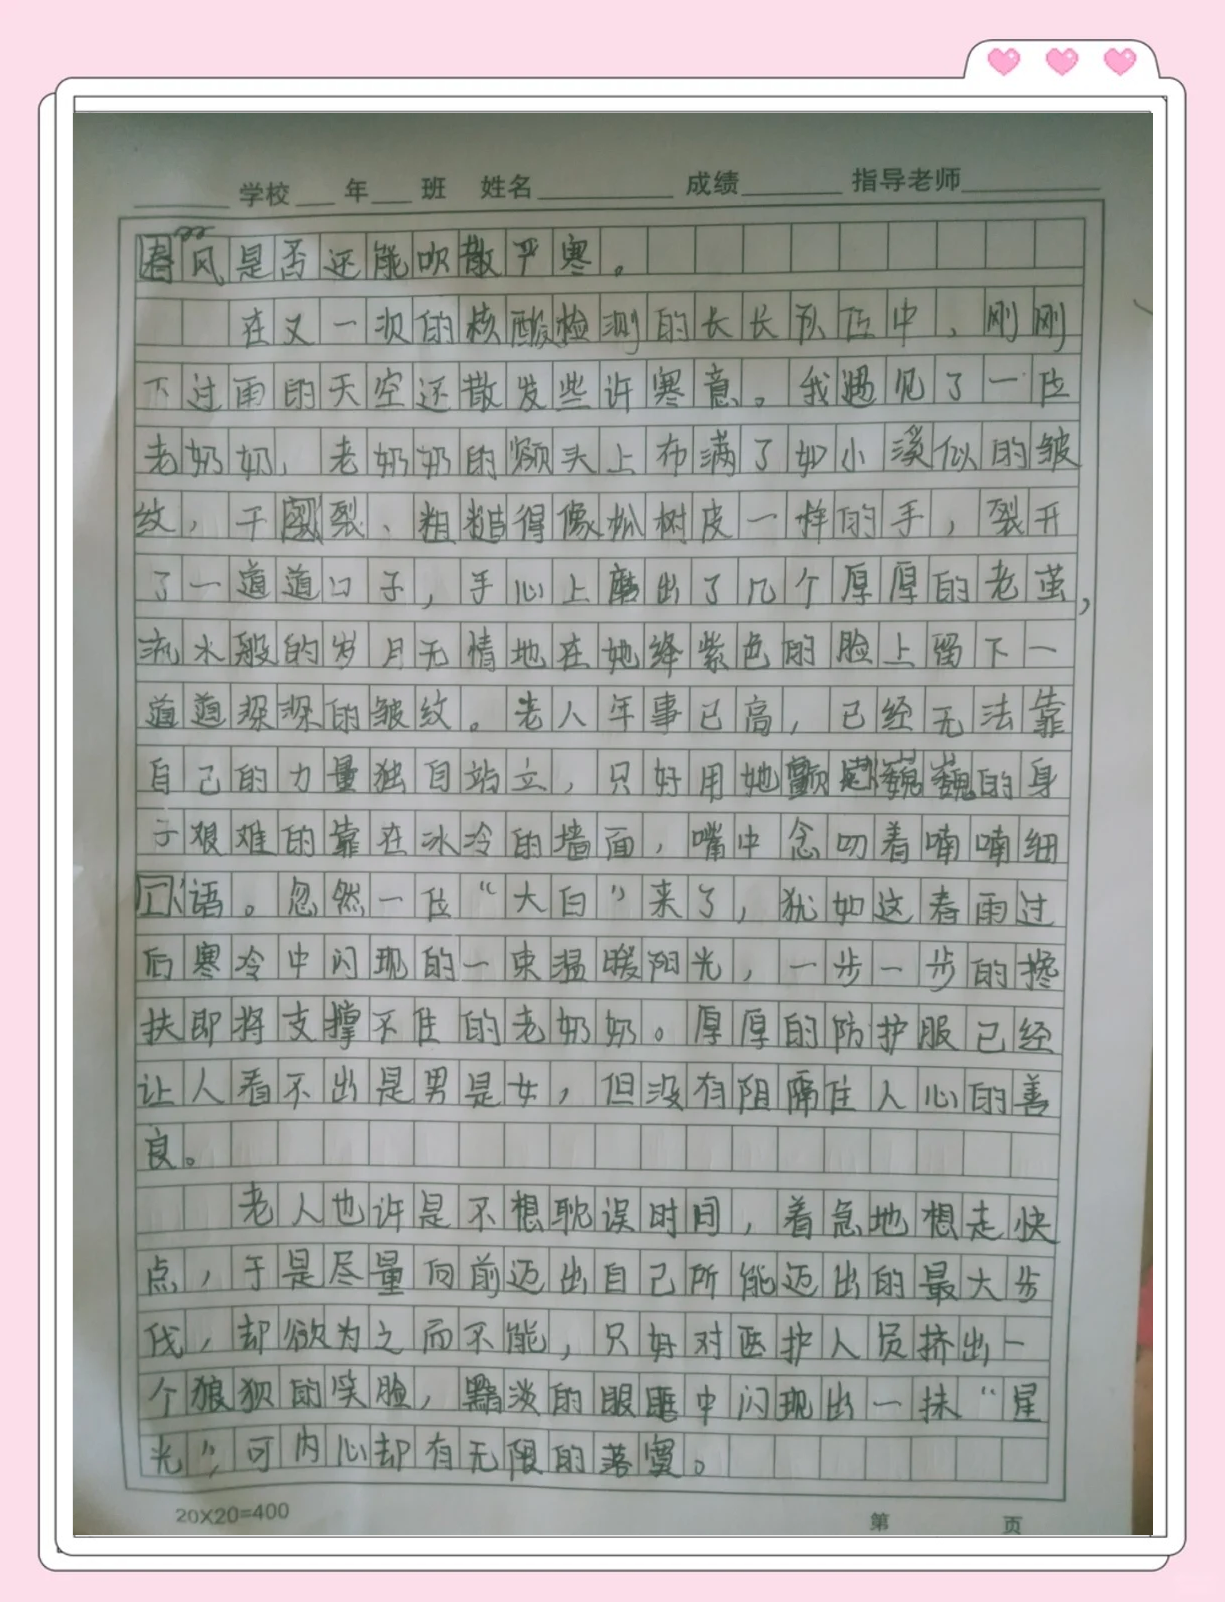 学校 年 班 姓名 成绩 指导老师
春风是否还能吹散严寒。
在又一次的核酸检测的长长队伍中，刚刚
下过雨的天空还散发些许寒意。我遇见了一位
老奶奶，老奶奶的额头上布满了如小溪似的皱
纹，干裂、粗糙得像松树皮一样的手，裂开
了一道道口子，手心上磨出了几个厚厚的老茧，
流水般的岁月无情地在她绛紫色的脸上留下一
道道深深的皱纹。老人年事已高，已经无法靠
自己的力量独自站立，只好用她颤巍巍的身
子艰难的靠在冰冷的墙面，嘴中念叨着喃喃细
语。忽然一位“大白”来了，犹如这春雨过
后寒冷中闪现的一束温暖阳光，一步一步的搀
扶即将支撑不住的老奶奶。厚厚的防护服已经
让人看不出是男是女，但没有阻隔住人心的善
良。
老人也许是不想耽误时间，着急地想走快
点，于是尽量向前迈出自己所能迈出的最大步
伐，却欲为之而不能，只好对医护人员挤出一
个狼狈的笑脸，黯淡的眼眶中闪现出一抹“星
光”，可内心却有无限的落寞。
20X20=400
第 页